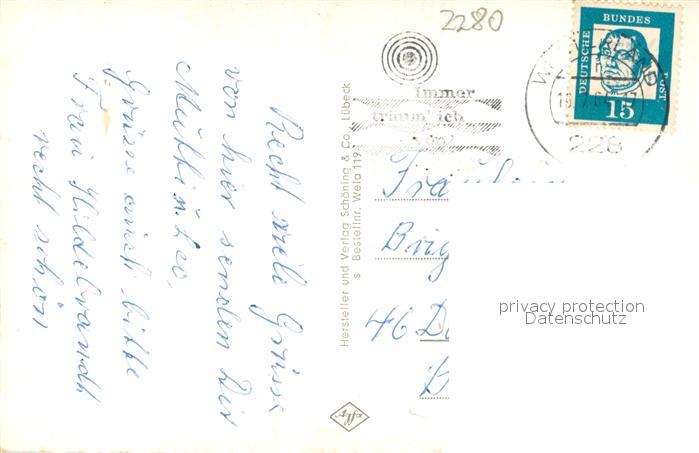 2280
DEUTSCHE
BUNDES
POST
15
WESTERLAND
228
Immer
träum' ich
von
Recht viele Grüsse
von hier senden Dir
Mutti u. Leo,
Grüsse auch bitte
Frau Hildebrandt
recht schön
Hersteller und Verlag Schöning & Co., Lübeck
s Bestellnr. Wela 119
Fräulein
Brig
46 Do
B
Agfa
privacy protection
Datenschutz